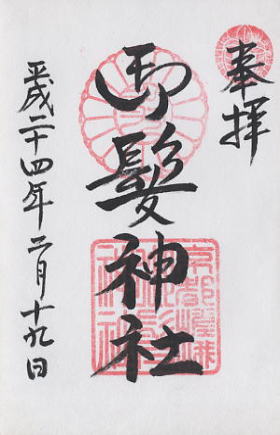 奉拝
御髪神社
平成二十四年二月十九日
京都嵯峨